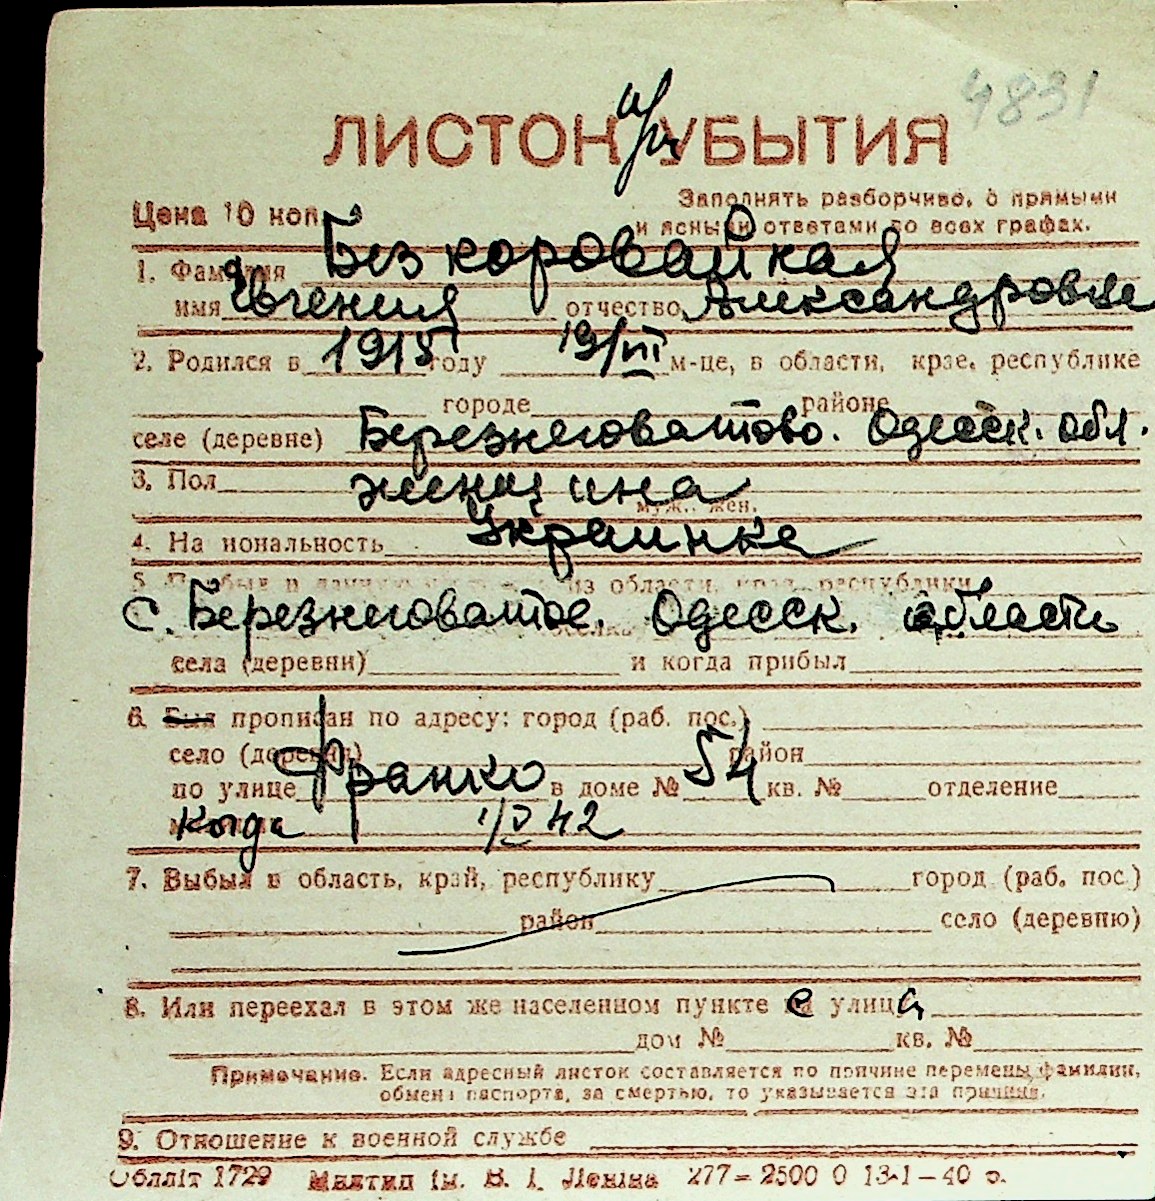 4831
ЛИСТОК УБЫТИЯ
Цена 10 коп.
Заполнять разборчиво, с прямыми
и ясными ответами во всех графах.
1. Фамилия Безкоровайная
имя Евгения отчество Александровна
2. Родился в 1915 году 19/VII м-це, в области, крае, республике
городе районе
селе (деревне) Березнеговатово. Одесск. обл.
3. Пол женщина
муж., жен.
4. Национальность Украинка
5. Прибыл в из области, края, республики
с. Березнеговатое. Одесск. области
села (деревни) и когда прибыл
6. Был прописан по адресу: город (раб. пос.)
село (деревня) район
по улице Франко в доме № 54 кв. № отделение
Когда 1/V 42
7. Выбыл в область, край, республику город (раб. пос.)
район село (деревню)
8. Или переехал в этом же населенном пункте с улицы
дом № кв. №
Примечание. Если адресный листок составляется по причине перемены фамилии,
обмена паспорта, за смертью, то указывается эта причина.
9. Отношение к военной службе
Облліт 1729 Миктип ім. В. І. Леніна 277–2500 0 13-1–40 р.